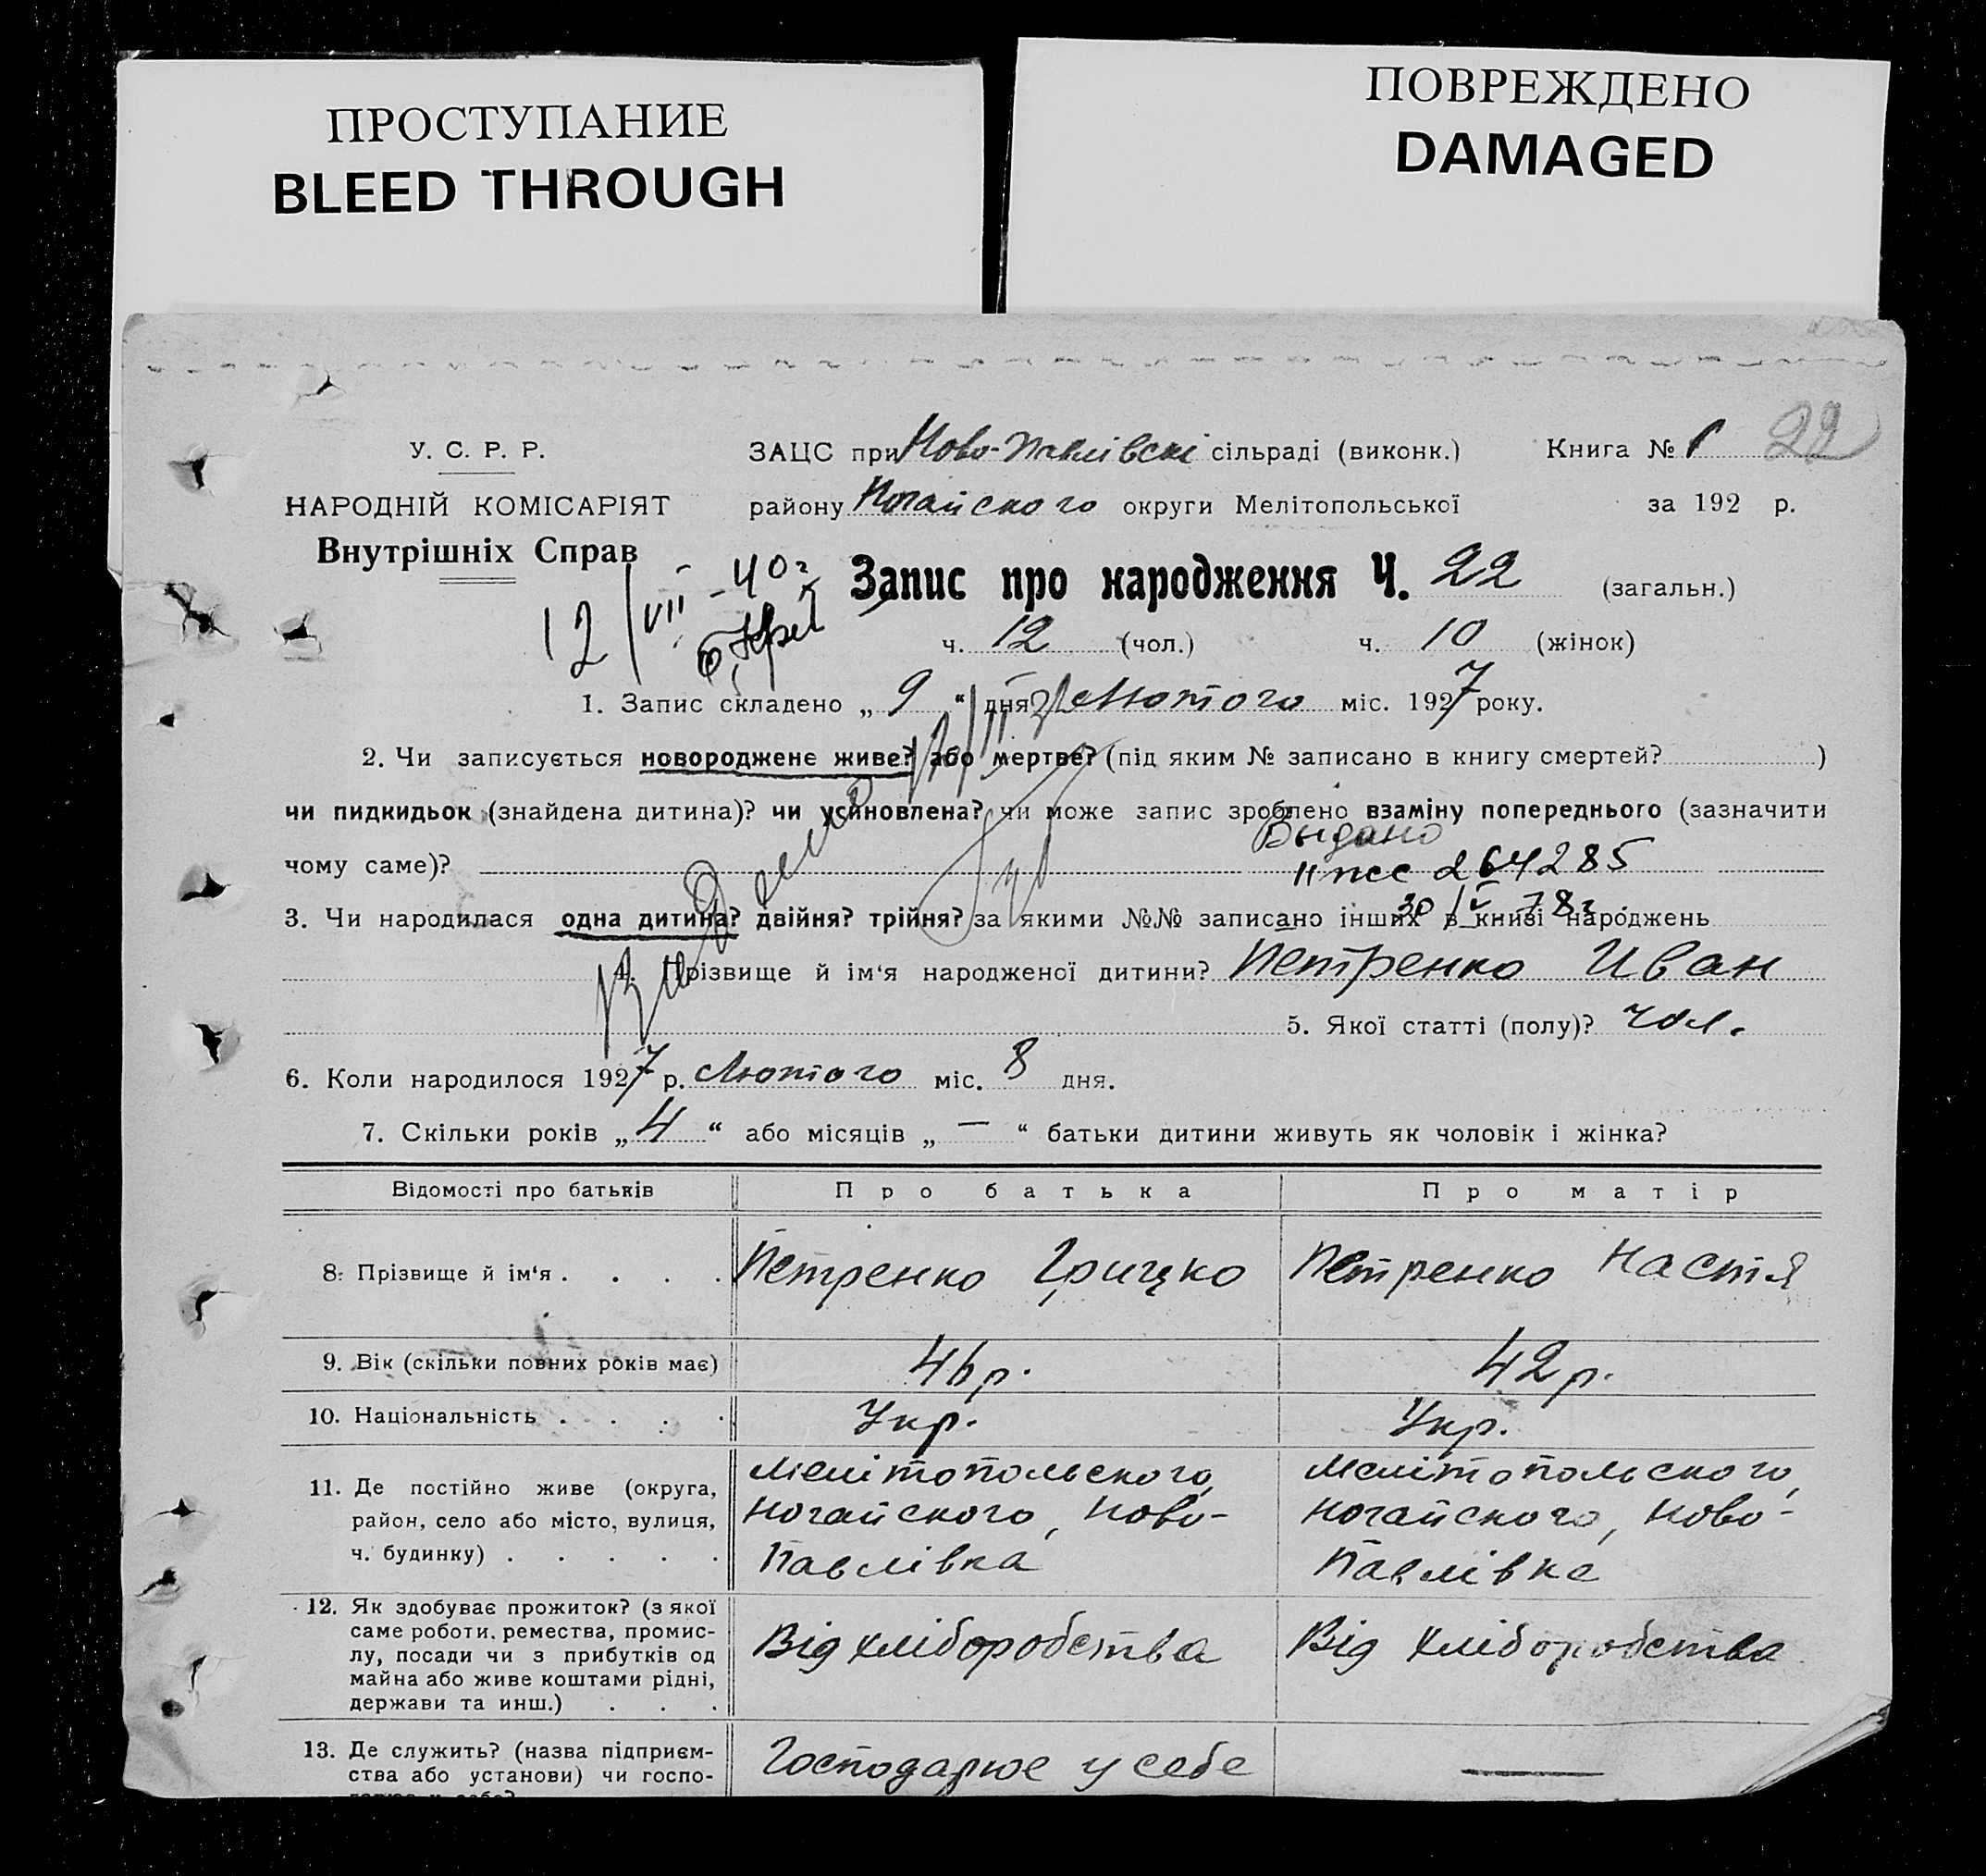 ПРОСТУПАНИЕ
BLEED THROUGH
ПОВРЕЖДЕНО
DAMAGED
У. С. Р. Р.
НАРОДНІЙ КОМІСАРІЯТ
Внутрішніх Справ
ЗАЦС при Ново-Павлівскі сільраді (виконк.)
Книга № 1 22
району Ногайского округи Мелітопольської
за 192 р.
12/VII - 40г
Запис про народження Ч. 22 (загальн.)
ч. 12 (чол.) ч. 10 (жінок)
1. Запис складено „ 9 “ дня Лютого міс. 1927 року.
2. Чи записується новороджене живе? або мертве? (під яким № записано в книгу смертей? )
чи пидкидьок (знайдена дитина)? чи усиновлена? чи може запис зроблено взаміну попереднього (зазначити
Выдано
чому саме)? 264285
3. Чи народилася одна дитина? двійня? трійня? за якими №№ записано інших в книзі народжень
30/V 78г.
4. Прізвище й ім‘я народженої дитини? Петренко Иван
5. Якої статті (полу)? чол.
6. Коли народилося 1927 р. Лютого міс. 8 дня.
7. Скільки років „ 4 “ або місяців „ — “ батьки дитини живуть як чоловік і жінка?
Відомості про батьків Про батька Про матір
8. Прізвище й ім‘я . . . . Петренко Грицко Петренко Настя
9. Вік (скільки повних років має) 46 р. 42 р.
10. Національність . . . . Укр. Укр.
11. Де постійно живе (округа,
район, село або місто, вулиця,
ч. будинку) . . . . .
Мелітопольского,
Ногайского, Ново-
Павлівка
Мелітопольского,
Ногайского, Ново-
Павлівка
12. Як здобуває прожиток? (з якої
саме роботи, ремества, промис-
лу, посади чи з прибутків од
майна або живе коштами рідні,
держави та инш.) . . .
Від хліборобства
Від хліборобства
13. Де служить? (назва підприєм-
ства або установи) чи госпо-
Господарює у себе
—